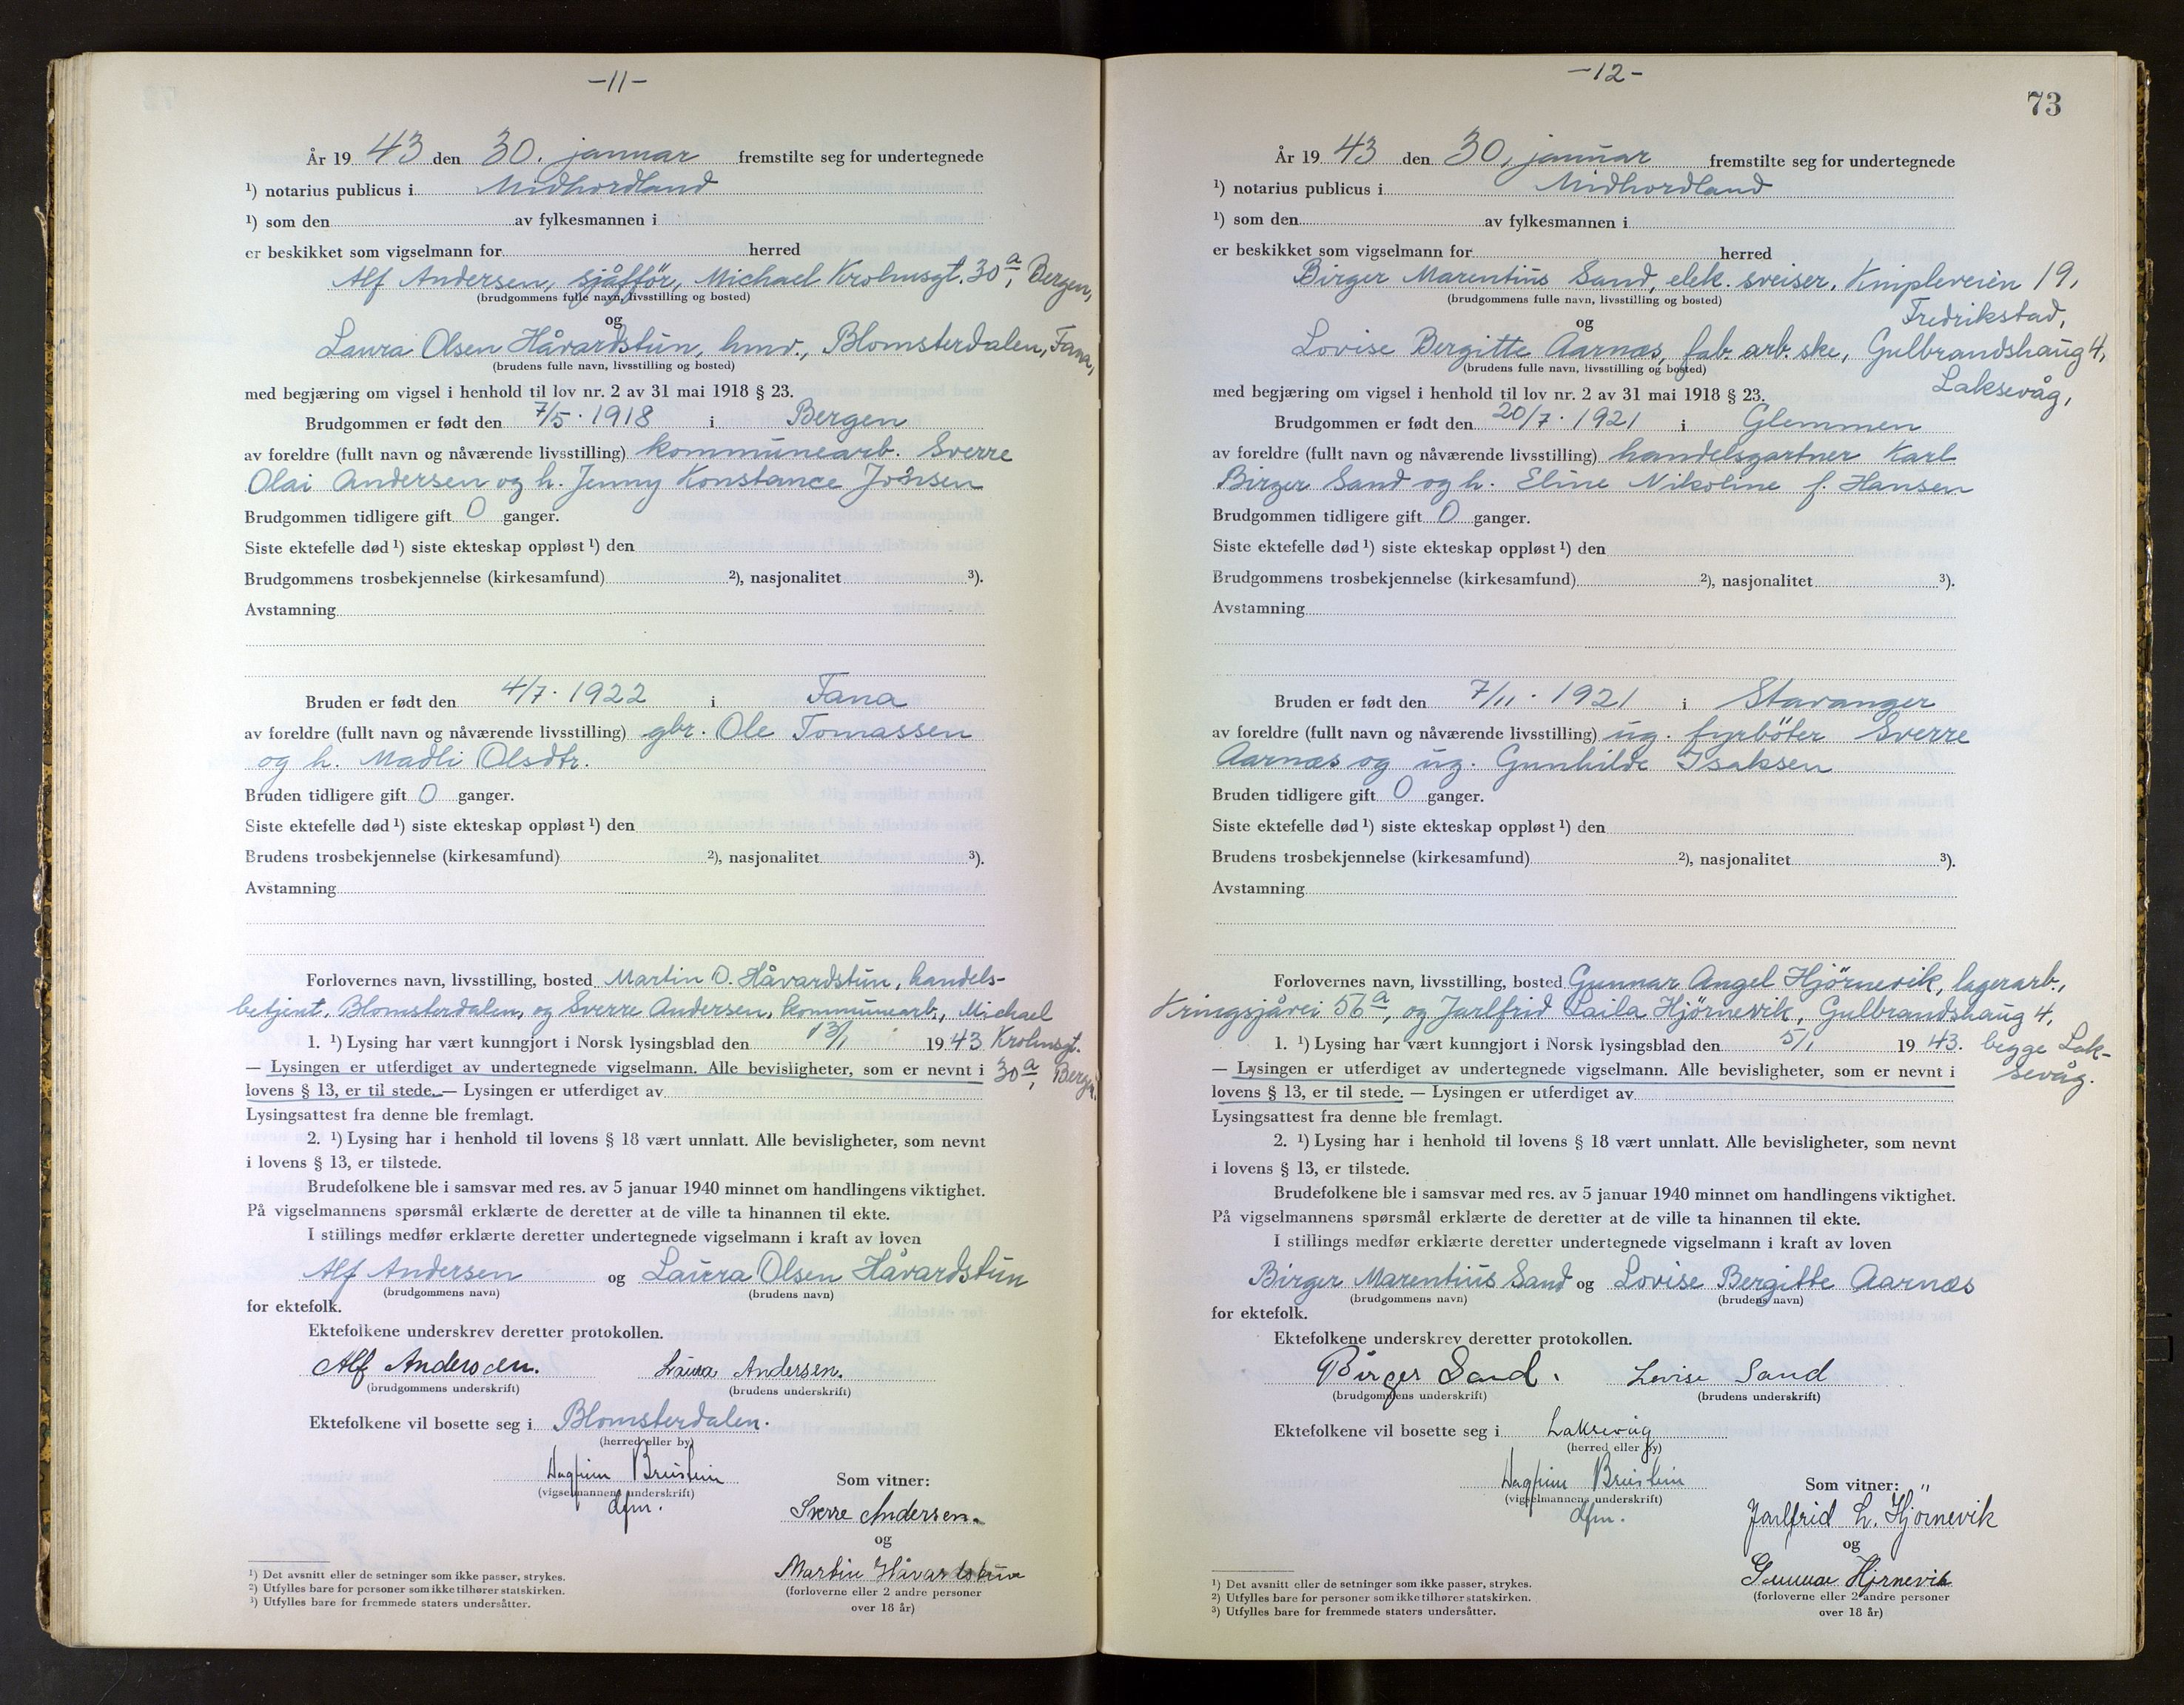 -11-
År 19 43 den 30. januar fremstilte seg for undertegnede
¹) notarius publicus i Midhordland
¹) som den av fylkesmannen i
er beskikket som vigselmann for herred
Alf Andersen, sjåffør, Michael Krohnsgt. 30 a, Bergen,
(brudgommens fulle navn, livsstilling og bosted)
og
Laura Olsen Håvardstun, hmv., Blomsterdalen, Fana,
(brudens fulle navn, livsstilling og bosted)
med begjæring om vigsel i henhold til lov nr. 2 av 31 mai 1918 § 23.
Brudgommen er født den 7/5. 1918 i Bergen
av foreldre (fullt navn og nåværende livsstilling) kommunearb. Sverre
Olai Andersen og h. Jenny Konstance Jonsen
Brudgommen tidligere gift 0 ganger.
Siste ektefelle død ¹) siste ekteskap oppløst ¹) den
Brudgommens trosbekjennelse (kirkesamfund) ²), nasjonalitet ³).
Avstamning
Bruden er født den 4/7. 1922 i Fana
av foreldre (fullt navn og nåværende livsstilling) gbr. Ole Tomassen
og h. Madli Olsdtr.
Bruden tidligere gift 0 ganger.
Siste ektefelle død ¹) siste ekteskap oppløst ¹) den
Brudens trosbekjennelse (kirkesamfund) ²), nasjonalitet ³).
Avstamning
Forlovernes navn, livsstilling, bosted Martin O. Håvardstun, handels-
betjent, Blomsterdalen, og Sverre Andersen, kommunearb., Michael
1. ¹) Lysing har vært kunngjort i Norsk lysingsblad den 13/1 19 43 Krohnsgt.
— Lysingen er utferdiget av undertegnede vigselmann. Alle bevisligheter, som er nevnt i 30 a, Bergen.
lovens § 13, er til stede. — Lysingen er utferdiget av
Lysingsattest fra denne ble fremlagt.
2. ¹) Lysing har i henhold til lovens § 18 vært unnlatt. Alle bevisligheter, som nevnt
i lovens § 13, er tilstede.
Brudefolkene ble i samsvar med res. av 5 januar 1940 minnet om handlingens viktighet.
På vigselmannens spørsmål erklærte de deretter at de ville ta hinannen til ekte.
I stillings medfør erklærte deretter undertegnede vigselmann i kraft av loven
Alf Andersen og Laura Olsen Håvardstun
(brudgommens navn) (brudens navn)
for ektefolk.
Ektefolkene underskrev deretter protokollen.
Alf Andersen. Laura Andersen.
(brudgommens underskrift) (brudens underskrift)
Ektefolkene vil bosette seg i Blomsterdalen.
(herred eller by)
Dagfinn Breistein
(vigselmannens underskrift)
dfm.
Som vitner:
Sverre Andersen.
og
Martin Håvardstun
(forloverne eller 2 andre personer
over 18 år)
¹) Det avsnitt eller de setninger som ikke passer, strykes.
²) Utfylles bare for personer som ikke tilhører statskirken.
³) Utfylles bare for fremmede staters undersåtter.
-12-
73
År 19 43 den 30. januar fremstilte seg for undertegnede
¹) notarius publicus i Midhordland
¹) som den av fylkesmannen i
er beskikket som vigselmann for herred
Birger Marentius Sand, elek. sveiser, Knipleveien 19,
(brudgommens fulle navn, livsstilling og bosted)
Fredrikstad,
og
Lovise Bergitte Aarnæs, fab. arb. ske, Gulbrandshaug 4,
(brudens fulle navn, livsstilling og bosted)
Laksevåg,
med begjæring om vigsel i henhold til lov nr. 2 av 31 mai 1918 § 23.
Brudgommen er født den 20/7. 1921 i Glemmen
av foreldre (fullt navn og nåværende livsstilling) handelsgartner Karl
Birger Sand og h. Eline Nikoline f. Hansen
Brudgommen tidligere gift 0 ganger.
Siste ektefelle død ¹) siste ekteskap oppløst ¹) den
Brudgommens trosbekjennelse (kirkesamfund) ²), nasjonalitet ³).
Avstamning
Bruden er født den 7/11. 1921 i Stavanger
av foreldre (fullt navn og nåværende livsstilling) ug. fyrböter Sverre
Aarnæs og ug. Gunhilde Isaksen
Bruden tidligere gift 0 ganger.
Siste ektefelle død ¹) siste ekteskap oppløst ¹) den
Brudens trosbekjennelse (kirkesamfund) ²), nasjonalitet ³).
Avstamning
Forlovernes navn, livsstilling, bosted Gunnar Angel Hjörnevik, lagerarb.,
Kringsjåvei 56 a, og Jarlfrid Laila Hjørnevik, Gulbrandshaug 4,
1. ¹) Lysing har vært kunngjort i Norsk lysingsblad den 5/1 19 43. begge Lak-
— Lysingen er utferdiget av undertegnede vigselmann. Alle bevisligheter, som er nevnt i sevåg.
lovens § 13, er til stede. — Lysingen er utferdiget av
Lysingsattest fra denne ble fremlagt.
2. ¹) Lysing har i henhold til lovens § 18 vært unnlatt. Alle bevisligheter, som nevnt
i lovens § 13, er tilstede.
Brudefolkene ble i samsvar med res. av 5 januar 1940 minnet om handlingens viktighet.
På vigselmannens spørsmål erklærte de deretter at de ville ta hinannen til ekte.
I stillings medfør erklærte deretter undertegnede vigselmann i kraft av loven
Birger Marentius Sand og Lovise Bergitte Aarnæs
(brudgommens navn) (brudens navn)
for ektefolk.
Ektefolkene underskrev deretter protokollen.
Birger Sand. Lovise Sand
(brudgommens underskrift) (brudens underskrift)
Ektefolkene vil bosette seg i Laksevåg
(herred eller by)
Dagfinn Breistein
(vigselmannens underskrift)
dfm.
Som vitner:
Jarlfrid L. Hjörnevik
og
Gunnar Hjørnevik
(forloverne eller 2 andre personer
over 18 år)
¹) Det avsnitt eller de setninger som ikke passer, strykes.
²) Utfylles bare for personer som ikke tilhører statskirken.
³) Utfylles bare for fremmede staters undersåtter.